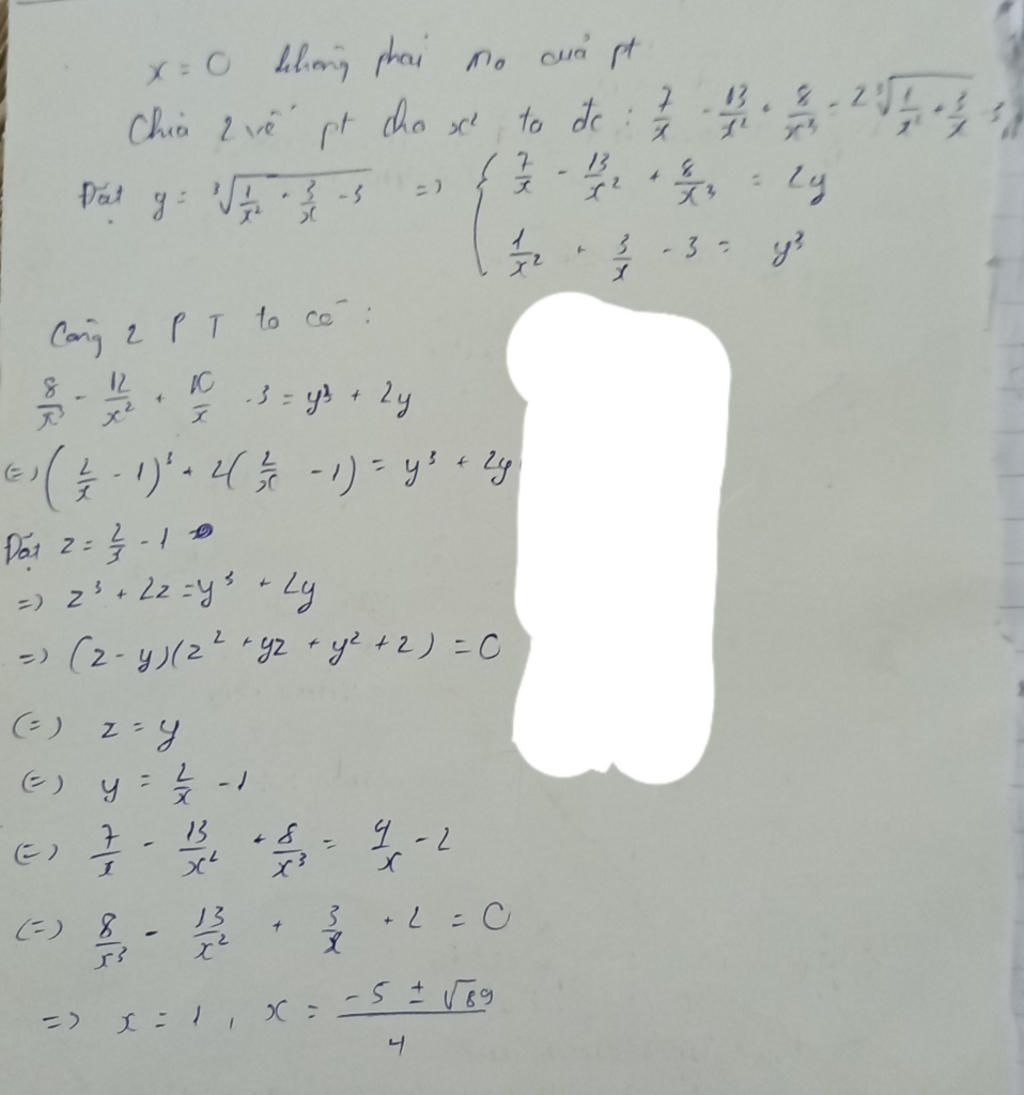 x = 0 không phải no cuả pt
Chia 2 vế pt cho x² ta đc : 7/x - 13/x² + 8/x³ = 2∛(1/x² + 3/x - 3)
Đặt y = ∛(1/x² + 3/x - 3) => { 7/x - 13/x² + 8/x³ = 2y
1/x² + 3/x - 3 = y³
Cộng 2 PT ta có :
8/x³ - 12/x² + 10/x - 3 = y³ + 2y
(=) (2/x - 1)³ + 2(2/x - 1) = y³ + 2y
Đặt z = 2/3 - 1
=> z³ + 2z = y³ + 2y
=> (z - y)(z² + yz + y² + 2) = 0
(=) z = y
(=) y = 2/x - 1
(=) 7/x - 13/x² + 8/x³ = 4/x - 2
(=) 8/x³ - 13/x² + 3/x + 2 = 0
=> x = 1 , x = (-5 ± √89)/4